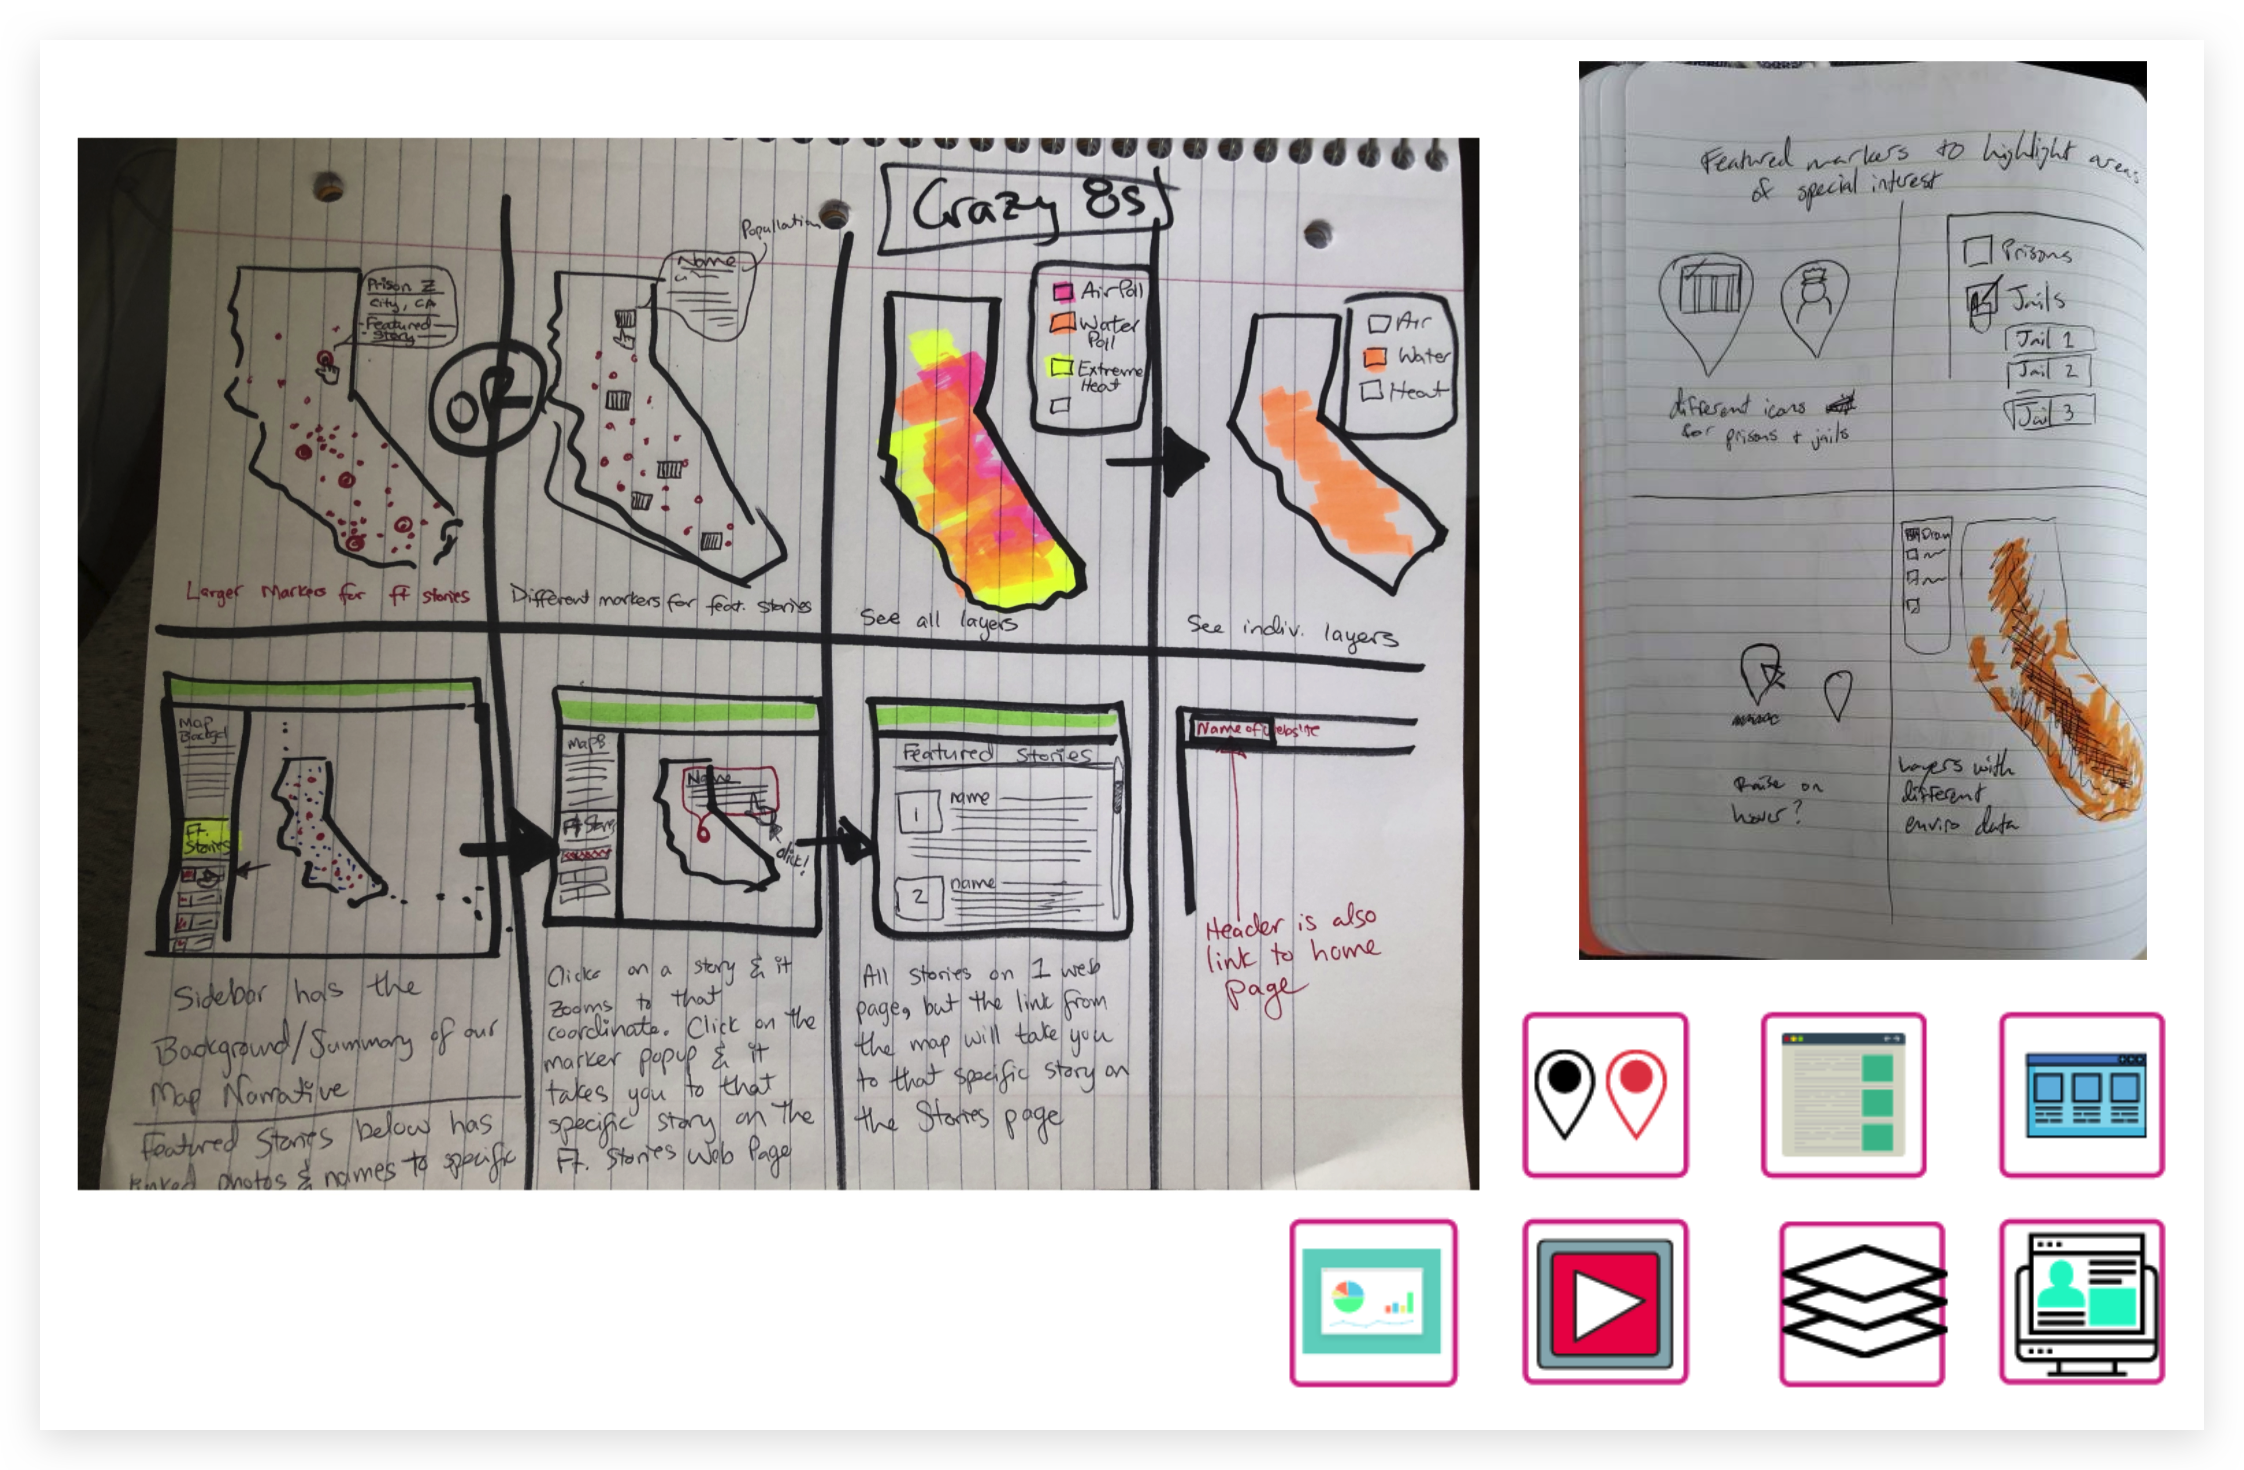 Crazy 8s
Prison Z
City, CA
Featured
Story
Larger Markers for ft stories
OR
Name
Popullation
Different markers for feat. stories
Air Poll
Water
Poll
Extreme
Heat
See all layers
Air
Water
Heat
See indiv. layers
Map
Ft.
Stories
Sidebar has the
Background/Summary of our
Map Narrative
Featured Stories below has
linked photos & names to specific
Maps
Ft Stories
Name
click!
Clicks on a story & it
zooms to that
coordinate. Click on the
marker popup & it
takes you to that
specific story on the
Ft. Stories Web Page
Featured Stories
1
name
2
name
All stories on 1 web
page, but the link from
the map will take you
to that specific story on
the Stories page
Name of Website
Header is also
link to home
page
Featured markers to highlight areas
of special interest
different icons
for prisons + jails
Prisons
Jails
Jail 1
Jail 2
Jail 3
Raise on
hover?
Layers with
different
enviro data